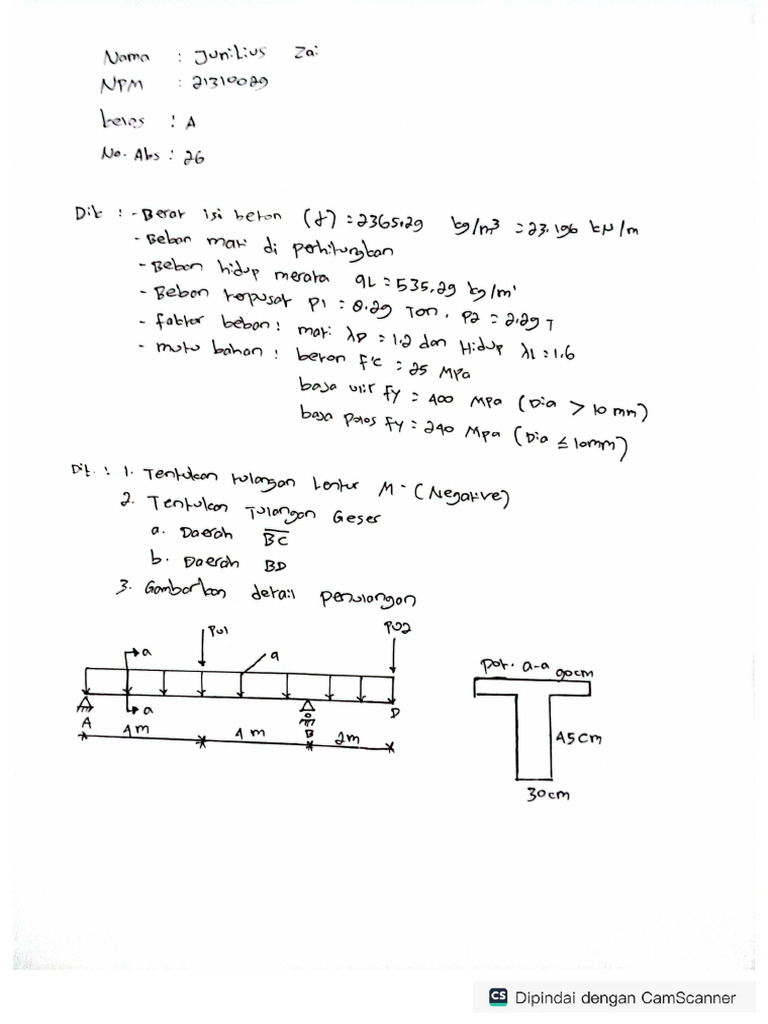 Nama : Junilius Zai
NPM : 21310029
kelas : A
No. Abs : 26
Dik : - Berat isi beton (γ) = 2365,29 kg/m³ = 23.196 kN/m
- Beban mati di perhitungkan
- Beban hidup merata qL = 535,29 kg/m'
- Beban terpusat P1 = 8.29 Ton, P2 = 2.29 T
- faktor beban : mati λD = 1.2 dan Hidup λL = 1.6
- mutu bahan : beton F'c = 25 MPa
baja ulir Fy = 400 MPa (Dia > 10 mm)
baja polos Fy = 240 MPa (Dia ≤ 10mm)
Dit. : 1. Tentukan tulangan Lentur M - (Negative)
2. Tentukan Tulangan Geser
a. Daerah BC
b. Daerah BD
3. Gambarkan detail penulangan
PU1
PU2
a
q
a
A
B
D
4m
4m
2m
Pot. a-a
90cm
45cm
30cm
CS Dipindai dengan CamScanner